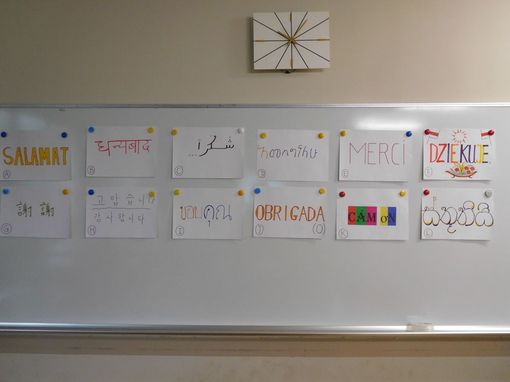 SALAMAT
A
धन्यवाद
B
شكراً...
C
D
MERCI
E
DZIĘKUJĘ
F
謝謝
G
고맙습니다
감사합니다
H
ขอบคุณ
I
OBRIGADA
J (O)
CÁM ƠN
K
ස්තූතියි
L